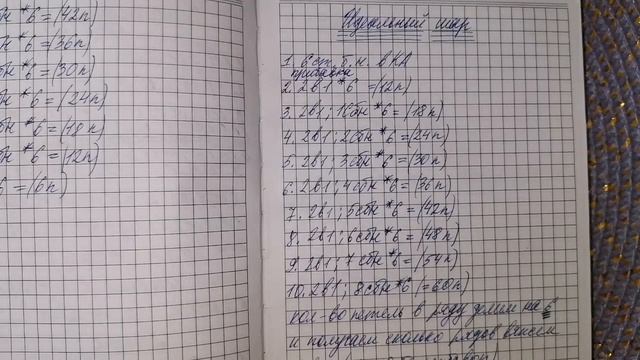 *6 = (42п)
*6 = (36п)
бн *6 = (30п)
бн *6 = (24п)
бн *6 = (18п)
бн *6 = (12п)
6 = (6п)
Идеальный шар
1. 6 ст. б. н. в КА
прибавка
2. 2в1 *6 = (12п)
3. 2в1; 1сбн *6 = (18п)
4. 2в1; 2сбн *6 = (24п)
5. 2в1; 3сбн *6 = (30п)
6. 2в1; 4сбн *6 = (36п)
7. 2в1; 5сбн *6 = (42п)
8. 2в1; 6сбн *6 = (48п)
9. 2в1; 7сбн *6 = (54п)
10. 2в1; 8сбн *6 (=60п)
кол-во петель в ряду делим на 6
и получаем сколько рядов вяжем